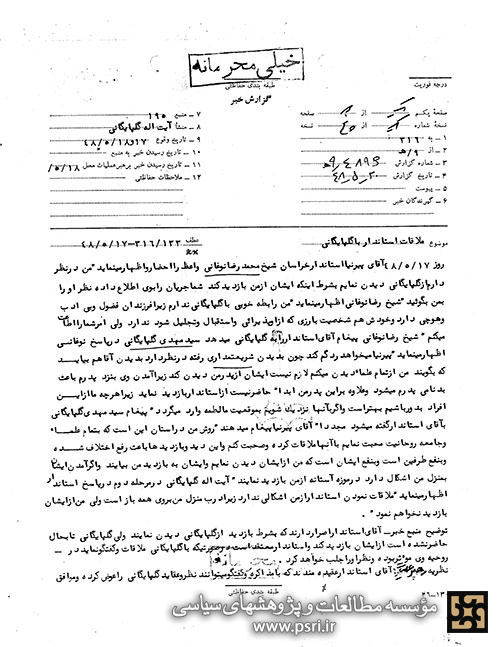 خیلی محرمانه
طبقه بندی حفاظتی
درجه فوریت
گزارش خبر
صفحهٔ یکم از صفحه
نسخهٔ شماره از نسخه
۱ – به ۳۱۶
۲ – از ۹/ه
۳ – شماره گزارش
۴ – تاریخ گزارش
۵ – پیوست
۶ – گیرندگان خبر
۷ – منبع ۱۹۵
۸ – منشأ آیت اله گلپایگانی
۹ – تاریخ وقوع ۱۷و۴۸/۵/۱۸
۱۰ – تاریخ رسیدن خبر به منبع
۱۱ – تاریخ رسیدن خبر برهبر عملیات محل
۱۲ – ملاحظات حفاظتی
موضوع ملاقات استاندار با گلپایگانی
عطف ۳۱۶/۱۲۲-۴۸/۵/۱۷
روز ۴۸/۵/۱۷ آقای پیرنیا استاندار خراسان شیخ محمد رضا نوغانی واعظ را احضار و اظهار مینماید "من در نظر
دارم از گلپایگانی دیدن نمایم بشرط اینکه ایشان از من بازدید کند شما جریان را بوی اطلاع داده نظر او را
بمن بگوئید" شیخ رضا نوغانی اظهار مینماید "من رابطه خوبی با گلپایگانی ندارم زیرا فرزندان فضول و بی ادب
و هوچی دارد و خودش هم شخصیت بارزی که از پذیرائی و استقبال و تجلیل شود ندارد ولی امر شما را اطاعت
میکنم" شیخ رضا نوغانی پیغام آقای استاندار را به گلپایگانی میدهد سید مهدی گلپایگانی در پاسخ نوغانی
اظهار مینماید "پیرنیا میخواهد رد گم کند چون بدیدن شریعتمداری رفته در نظر دارد بدیدن آقا هم بیاید
که بگویند من از تمام علما دیدن میکنم لازم نیست ایشان از پدر من دیدن کند زیرا آمدن وی بنزد پدرم باعث
بدنامی پدرم میشود وعلاوه براین پدر من ابدا" حاضر نیست از استاندار بازدید نماید زیرا هرچه ما از این
افراد بدور باشیم بهتر است و اگر بآنها نزدیک شویم بموقعیت ما لطمه وارد میگردد" پیغام سید مهدی گلپایگانی
بآقای استاندار گفته میشود مجددا" آقای پیرنیا پیغام میدهند "روش من در استان این است که بتمام علما
و جامعه روحانیت محبت نمایم با آنها ملاقات کرده و صحبت کنم و این دید و بازدیدها باعث رفع اختلاف شده
وبنفع طرفین است و بنفع ایشان است که من از ایشان دیدن نمایم و ایشان به بازدید من بیایند و اگر آمدن ایشان
بمنزل من اشکال دارد در موزه آستانه از من بازدید نمایند" آیت اله گلپایگانی در مرحله دوم در پاسخ استاندار
اظهار مینماید "ملاقات نمودن استاندار از من اشکالی ندارد زیرا درب منزل من بروی همه باز است ولی من از ایشان
بازدید نخواهم نمود".
توضیح منبع خبر - آقای استاندار اصرار دارند که بشرط بازدید از گلپایگانی دیدن نمایند ولی گلپایگانی تا بحال
حاضر نشده است از ایشان بازدید کند و استاندار معتقد است در صورتیکه با گلپایگانی ملاقات و گفتگو نماید در
روحیه وی موثر بوده و نظر او را جلب خواهد کرد.
نظریه آقای استاندار عقیده مندند که با مذاکره و گفتگو میتوانند نظر و عقاید گلپایگانی را عوض کرده و موافق
طبقه بندی حفاظتی
۲۶-۱۳
مؤسسه مطالعات و پژوهشهای سیاسی
www.psri.ir